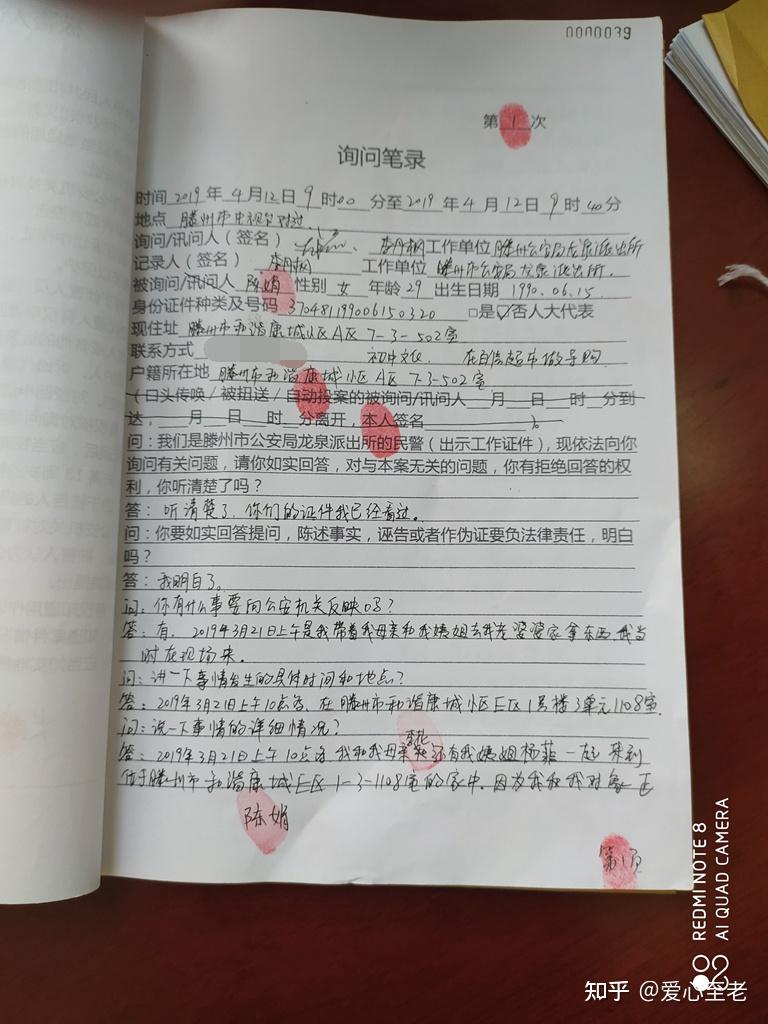 0000039
第 1 次
询问笔录
时间 2019 年 4 月 12 日 9 时 00 分至 2019 年 4 月 12 日 9 时 40 分
地点 滕州市
询问/讯问人（签名） 李丹枫 工作单位 滕州公安局龙泉派出所
记录人（签名） 李丹枫 工作单位 滕州市公安局龙泉派出所.
被询问/讯问人 陈娟 性别 女 年龄 29 出生日期 1990.06.15.
身份证件种类及号码 370481199006150320 □是☑否人大代表
现住址 滕州市和谐康城小区A区 7-3-502室
联系方式 初中文化. 在自信超市做导购.
户籍所在地 滕州市和谐康城小区A区 7-3-502室
（口头传唤/被扭送/自动投案的被询问/讯问人 月 日 时 分到
达， 月 日 时 分离开，本人签名 ）。
问：我们是滕州市公安局龙泉派出所的民警（出示工作证件），现依法向你
询问有关问题，请你如实回答，对与本案无关的问题，你有拒绝回答的权
利，你听清楚了吗？
答：听清楚了，你们的证件我已经看过。
问：你要如实回答提问，陈述事实，诬告或者作伪证要负法律责任，明白
吗？
答：我明白了。
问：你有什么事要向公安机关反映吗？
答：有. 2019年3月21日上午是我带着我母亲和我姨姐去我老婆婆家拿东西,我当
时在现场来.
问：讲一下事情发生的具体时间和地点？
答：2019年3月21日上午10点多，在滕州市和谐康城小区E区1号楼3单元1108室.
问：说一下事情的详细情况？
答：2019年3月21日上午10点多 我和我母亲 还有我姨姐杨菲一起 来到
位于滕州市和谐康城E区1-3-1108室的家中. 因为我和我对象正
陈娟
第1页
REDMI NOTE 8
AI QUAD CAMERA
知乎 @爱心至老